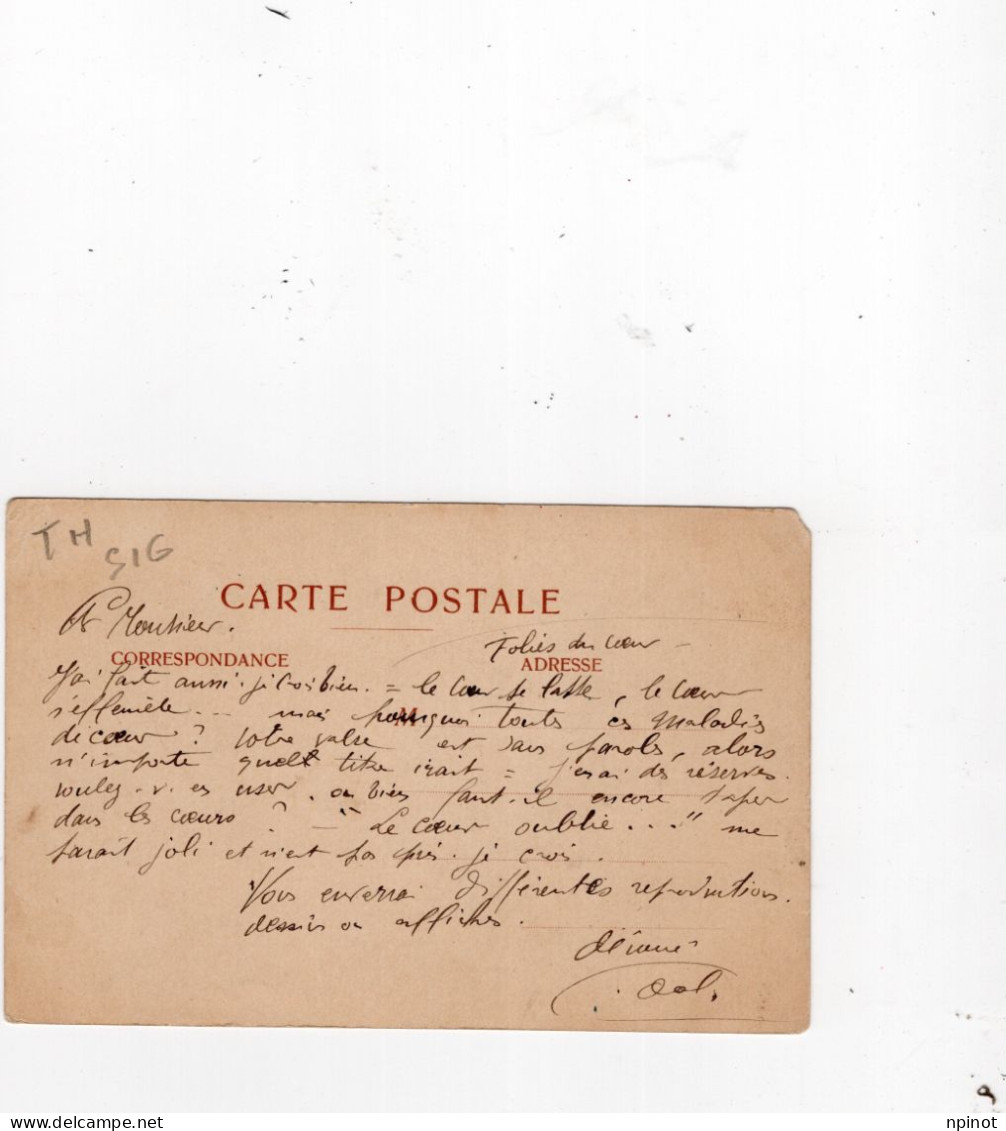 TH
SIG
CARTE POSTALE
Monsieur.
Folies du cœur –
CORRESPONDANCE ADRESSE
J'ai fait aussi. je crois bien. = le Cœur se lasse, le Cœur
s'effeuille ... mais pourquoi toutes ces maladies
M
de cœur ? Votre valse est sans paroles, alors
n'importe quel titre irait = j'en ai des réserves.
voulez-v. en user. ou bien faut-il encore taper
dans les cœurs ? – "Le cœur oublie..." me
parait joli et n'est pas pris. je crois.
Vous enverrai différentes reproductions.
dessins ou affiches.
npinot